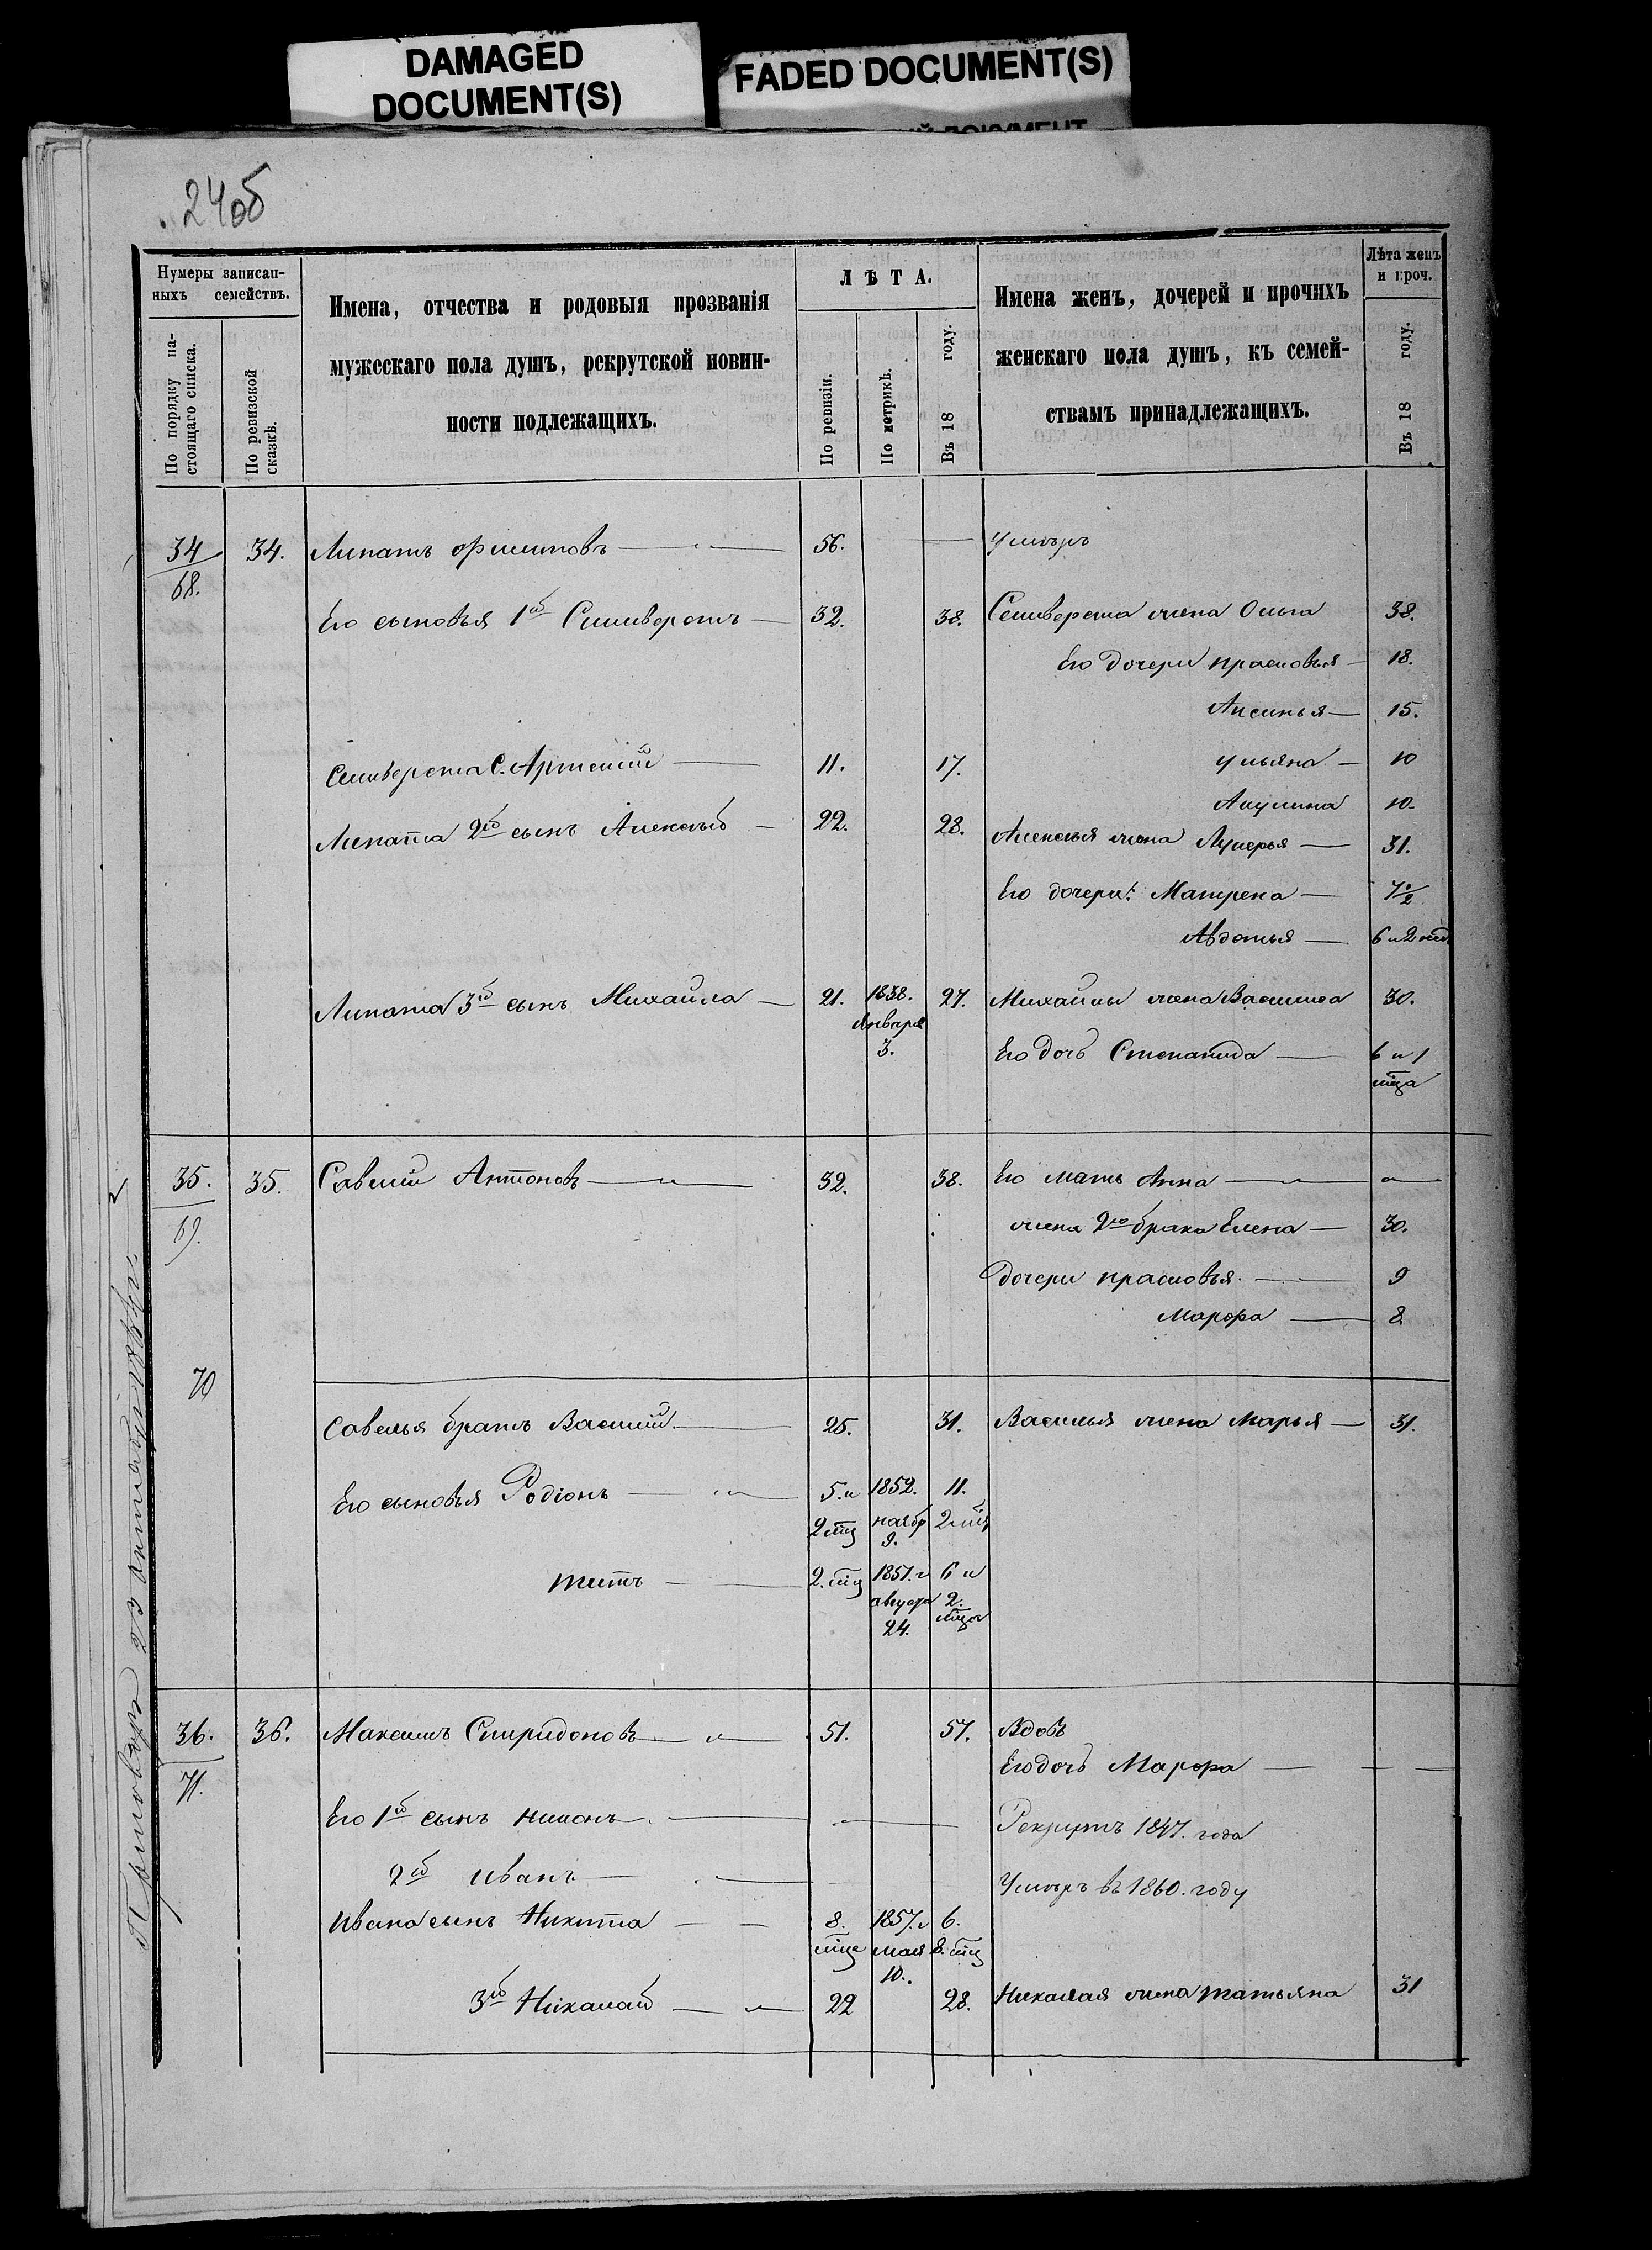 DAMAGED
DOCUMENT(S)
FADED DOCUMENT(S)
24об
Нумеры записан-
ныхъ семействъ.
По порядку на-
стоящаго списка.
По ревизской
сказкѣ.
Имена, отчества и родовыя прозванія
мужескаго пола душъ, рекрутской повин-
ности подлежащихъ.
ЛѢТА.
По ревизіи.
По метрикѣ.
Въ 18 году.
Имена женъ, дочерей и прочихъ
женскаго пола душъ, къ семей-
ствамъ принадлежащихъ.
Лѣта женъ
и проч.
Въ 18 году.
34 34. Липатъ 56. Умѣръ
68.
Его сыновья 1й Селиверстъ 32. 38. Селиверста жена Ольга 38.
Его дочери прасковья 18.
Аксинья 15.
Селиверста С. Артемий 11. 17. ульяна 10
Акулина 10
Липата 2й сынъ Алексѣй 22. 28. Алексѣя жена Лукерья 31.
Его дочери: Матрена 7½
Авдотья 6 и 2 мѣс
Липата 3й сынъ Михайла 21. 1838. 27. Михайлы жена Василиса 30.
января
3.
Его дочь Степанида 6 и 1
мца
35. 35. Савелій Антоновъ 32. 38. Его мать Анна
69.
жена 2го брака Елена 30.
дочери прасковья 9
Марфа 8
70
Савелья братъ Василий 25. 31. Василья жена Марья 31.
Его сыновья Родіонъ 5. и 1852. 11.
2 мц ноябр 2 мц
9.
титъ 2. мц 1857. г 6 и
августа 2.
24. мца
36. 36. Максимъ Спиридоновъ 51. 57. Вдовъ
71.
Его дочь Марфа
Его 1й сынъ Никонъ Рекрутъ 1847. года
2й Иванъ Умѣръ въ 1860. году
Ивана сынъ Никита 8. 1857. г 6.
мца мая 8. мц
10.
3й Николай 22 28. Николая жена татьяна 31